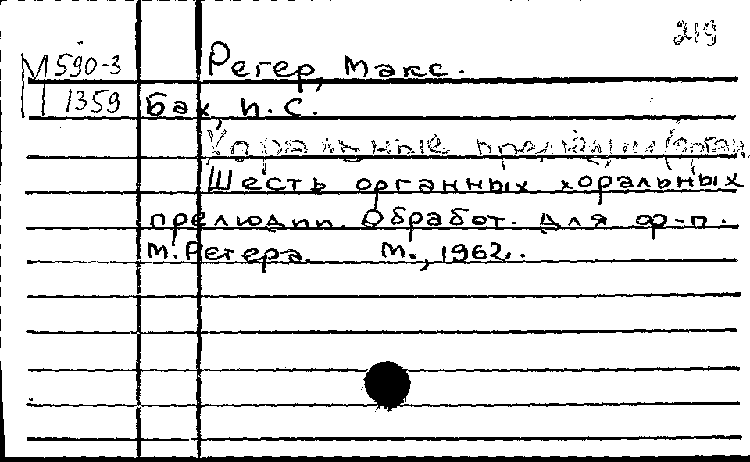 219
М 590-3 Регер, Макс.
1359 Бах, И.С.
Хоральные прелюдии (орган
Шесть органных хоральных
прелюдий. Обработ. для ф-п.
М. Регера. М., 1962.